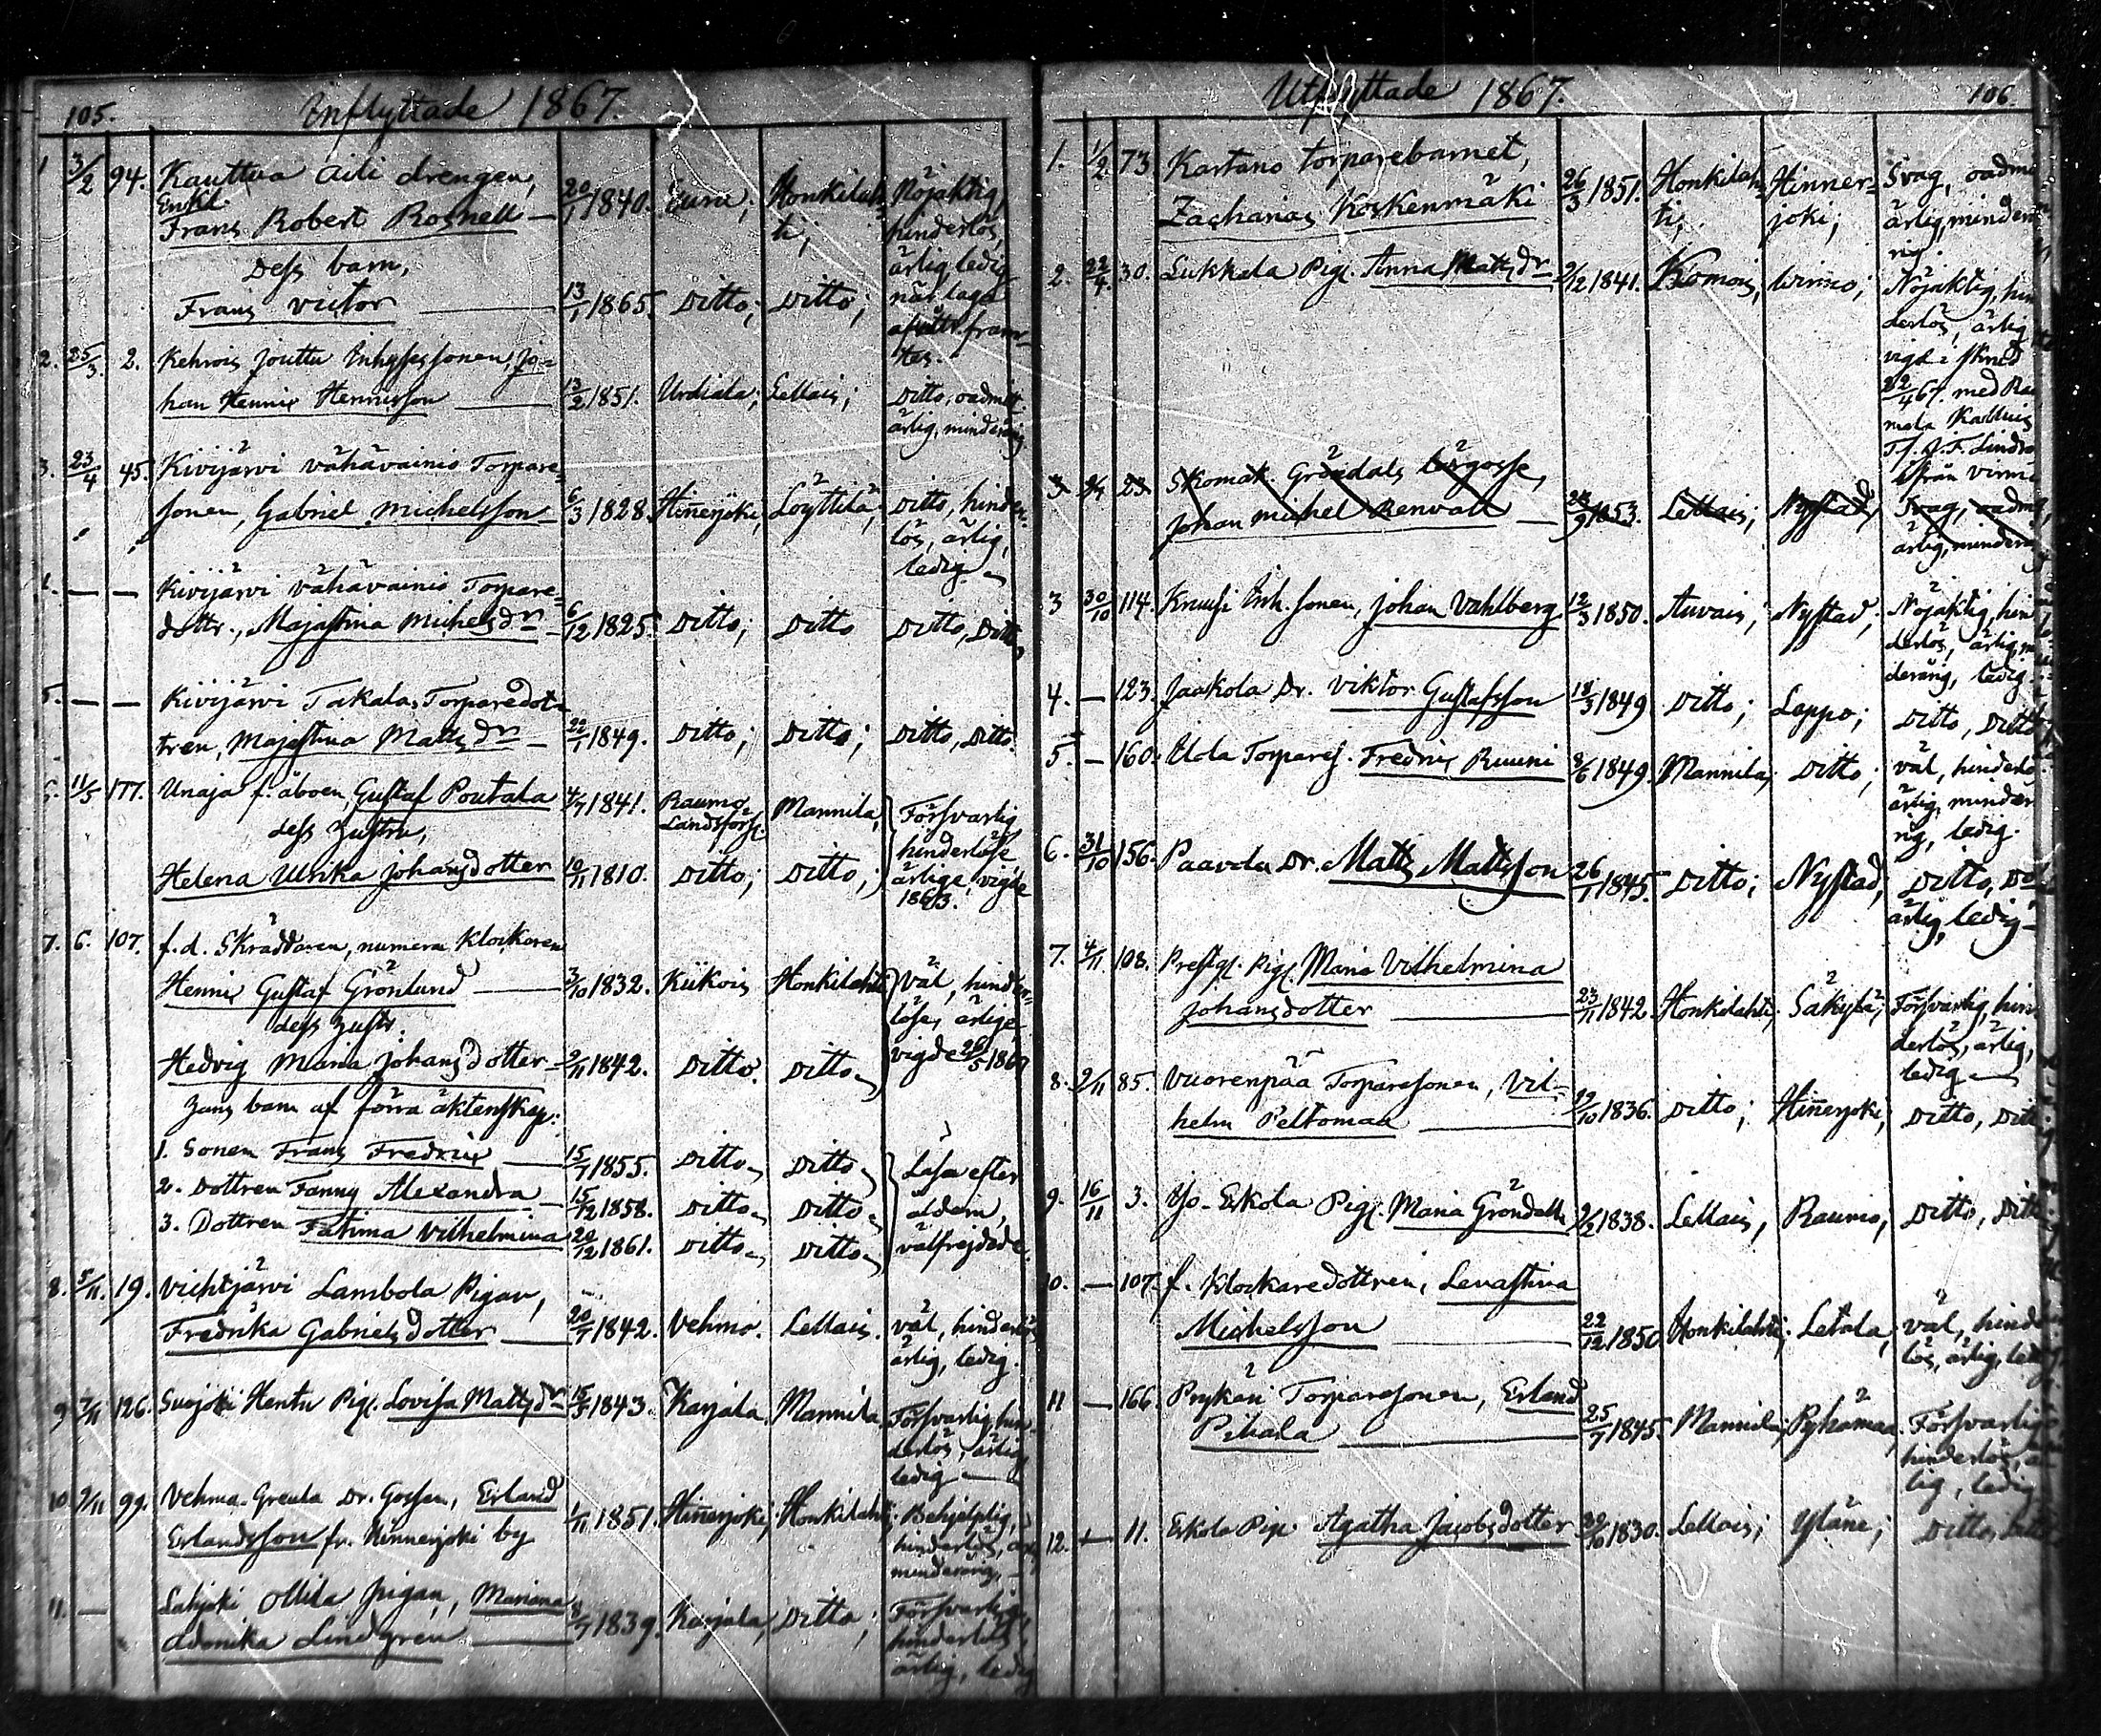 105.
Inflyttade 1867.
1 3/2 94. Kauttua Aili drengen,
Enkl.
Frans Robert Rosnell — 20/1 1840. Eura; Honkilah-ti; Nöjaktig, hinderlös, ärlig, ledig
Dess barn,
Frans Victor — 13/1 1865. Ditto; Ditto;
2. 25/3 2. Kehrois Jouttu Inhyses sonen, Jo-
han Henric Henricsson — 13/2 1851. Urdiala; Lellais; Ditto, oadmitt. ärlig, minderårig
3. 23/4 45. Kivijärvi Vähävainio Torpare-
sonen, Gabriel Michelsson — 6/3 1828. Hinnerjoki; Löyttilä; Ditto, hinder-
lös, ärlig,
ledig
— — Kivijärvi Vähävainio Torpare-
dottr., Majastina Michelsdr — 6/12 1825. Ditto; Ditto Ditto, Ditto
5. — — Kivijärvi Takala, Torparedot-
tren, Majastina Mattsdr — 22/1 1849. Ditto; Ditto; Ditto, Ditto.
11/5 177. Unaja f. åboen, Gustaf Poutala 4/7 1841. Raumo Landsförs. Mannila, Försvarlig
dess hustru, hinderlöse
Helena Ulrika Johansdotter 10/11 1810. Ditto; Ditto; ärlige, vigde
1863.
7. 6. 107. f.d. Skräddaren, numera Klockaren
Henric Gustaf Grönlund — 3/10 1832. Kiikois Honkilahti Väl, hinder-
dess hustr. löse, ärlige,
Hedvig Maria Johansdotter — 2/11 1842. Ditto. Ditto vigde 26/5
Hans barn af förra äktenskap:
1. Sonen Frans Fredric — 15/7 1855. Ditto Ditto Läsa efter
2. Dottren Fanny Alexandra 15/12 1858. Ditto Ditto åldern,
3. Dottren Fatima Vilhelmina 20/12 1861. Ditto Ditto välfrejdade.
8. 5/11. 19. Vichtjärvi Lambola Pigan,
Fredrika Gabrielsdotter — 20/7 1842. Vehmo. Lellais. Väl, hinderlös
ärlig, ledig.
9 7/11 126. Suojoki Hentu Pig. Lovisa Mattsdr 15/3 1843. Karjala Mannila Försvarlig, hin-
derlös, ärlig
ledig —
10. 9/11 99. Vehma-Greula Dr. Gossen, Erland 1/11 1851. Hinnerjoki; Honkilahti; Behjelplig,
Erlandsson fr. Hinnerjoki by hinderlös,
minderårig, —
11. — Lahjoki Ollila pigan, Mariana
Adonika Lindgren — 8/7 1839. Karjala, Ditto; Försvarlig,
hinderlös,
ärlig, ledig
Utflyttade 1867.
106
1. 1/2 73 Kartano torparebarnet,
Zacharias Koskenmäki 26/3 1851. Honkilah-ti; Hinner-joki; Svag,
ärlig, minderå-
rig.
2. 22/4. 30. Lukkala Pig. Anna Mattsdr 2/12 1841. Komois, Virmo; Nöjaktig, hin
derlös, ärlig
vigd i
22/4 67. med
3 23 Skomak. Gröndals lärgosse,
Johan Michel Renvall — 1853. Lellais; Nystad, Svag,
ärlig, minderå
3 30/10 114. Kruusi Inh. sonen, Johan Vahlberg 12/3 1850. Auvais; Nystad; Nöjaktig, hin
derlös, ärlig,
derårig, ledig.
4. — 123. Jaakola Dr. Viktor Gustafsson 18/3 1849 Ditto; Lappo; Ditto, Ditto
5. — 160. Uola Torpares. Fredric Ruuni 8/6 1849. Mannila; Ditto; Väl, hinderlö
ärlig, minderå
rig, ledig.
6. 31/10 156. Paavola Dr. Matts Mattsson 26/1 1845. Ditto; Nystad, Ditto,
ärlig, ledig —
7. 4/11. 108. Prestg. Pig. Maria Vilhelmina
Johansdotter — 23/11 1842. Honkilahti; Säkylä; Försvarlig, hin
derlös, ärlig,
ledig —
8. 9/11 85. Vuorenpää Torparesonen, Vil-
helm Peltomaa — 19/10 1836. Ditto; Hinnerjoki; Ditto, Ditt
9. 16/11 3. Yso-Eskola Pig. Maria Gröndahl 2/6 1838. Lellais, Raumo, Ditto, Ditt
10. — 107. f. Klockaredottren, Lenastina
Michelsson — 22/12 1850 Honkilahti; Letala, Väl, hinder
lös, ärlig, ledig
11 — 166. Prykäri Torparesonen, Erland
Pihala — 25/7 1845. Mannila; Pyhämaa, Försvarlig
hinderlös, är
lig, ledig
12. — 11. Eskola Pig. Agatha Jacobsdotter 1830. Lellais; Yläne; Ditto,